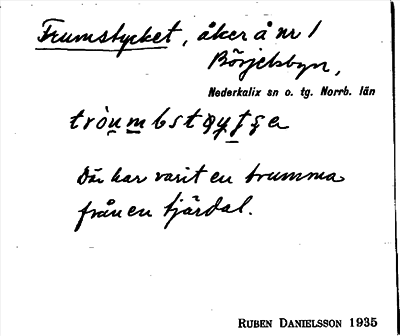 Trumstycket, åker å nr 1
Börjelsbyn,
Nederkalix sn o. tg. Norrb. län
Där har varit en trumma
från en tjärdal.
RUBEN DANIELSSON 1935